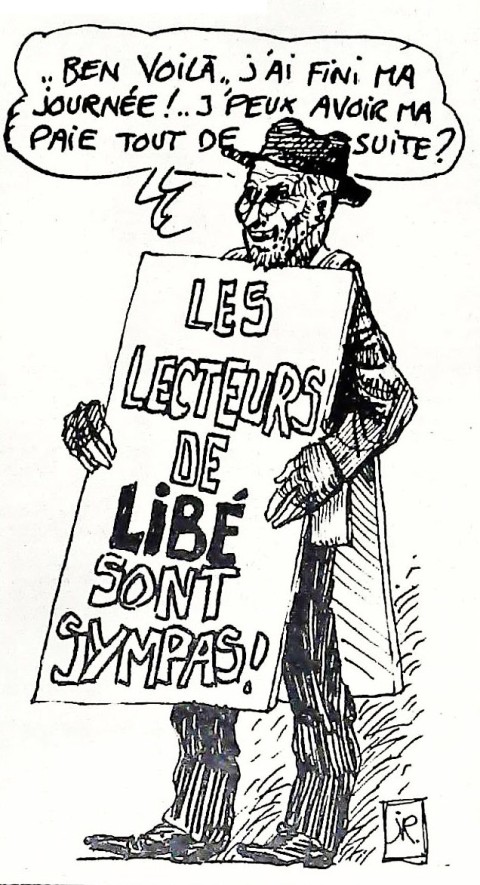 .. BEN VOILÀ.. J'AI FINI MA
JOURNÉE !.. J'PEUX AVOIR MA
PAIE TOUT DE SUITE ?
LES
LECTEURS
DE
LIBÉ
SONT
SYMPAS !
JR.